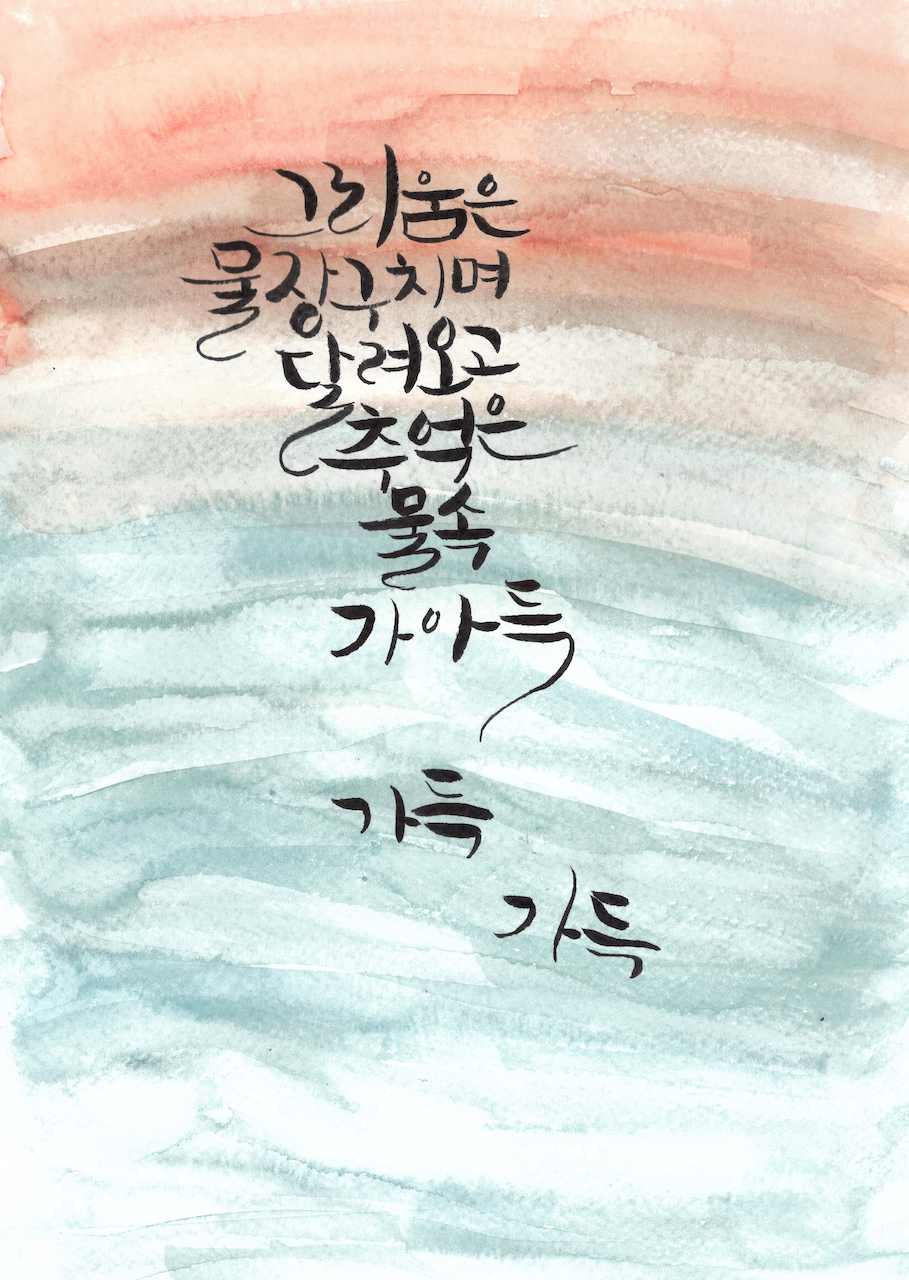 그리움은
물장구치며
달려오고
추억은
물속
가아득
가득
가득